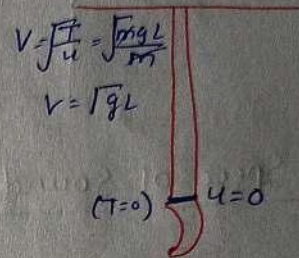 V = √T/u = √mgL/m
V = √gL
(T=0) u=0